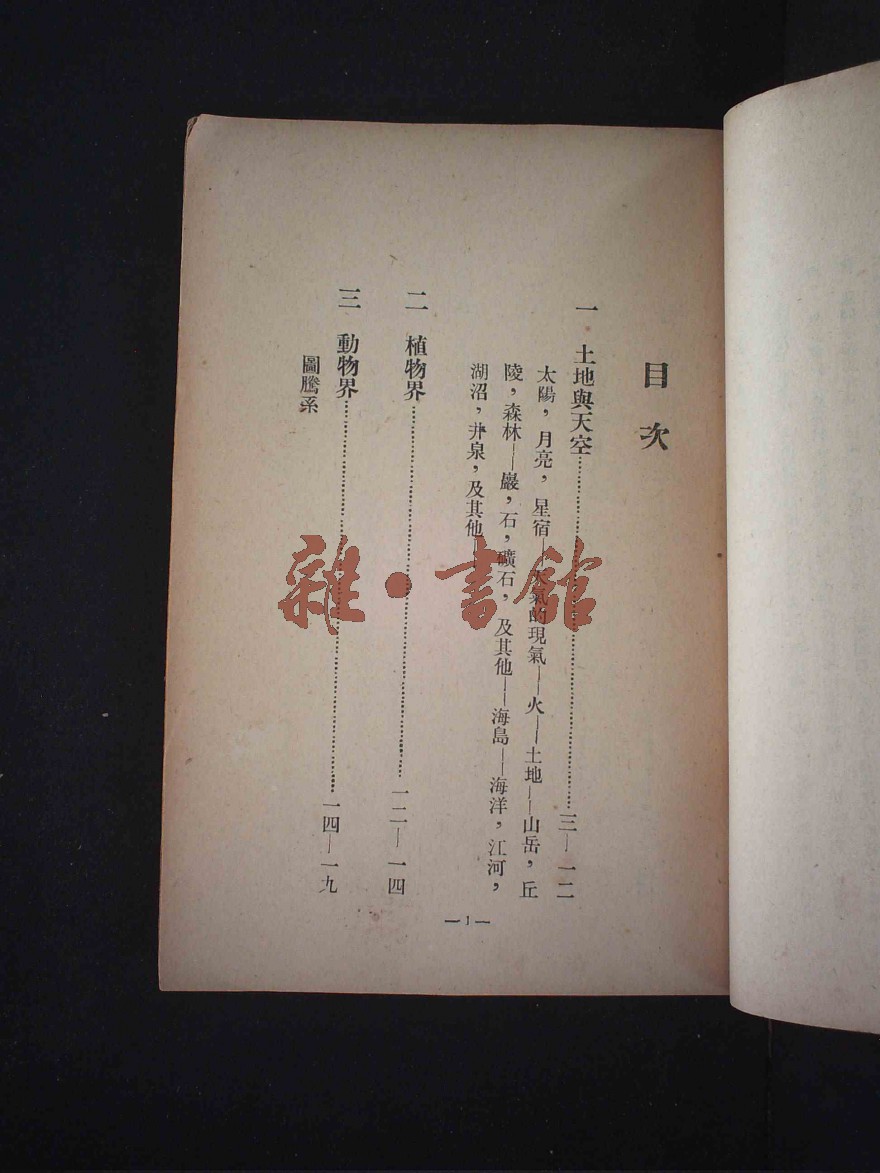 目次
一 土地與天空……三—一二
太陽，月亮，星宿——天氣的現氣——火——土地——山岳，丘
陵，森林——巖，石，礦石，及其他——海島——海洋，江河，
湖沼，井泉，及其他
二 植物界……一二—一四
三 動物界……一四—一九
圖騰系
—1—
雜·書館